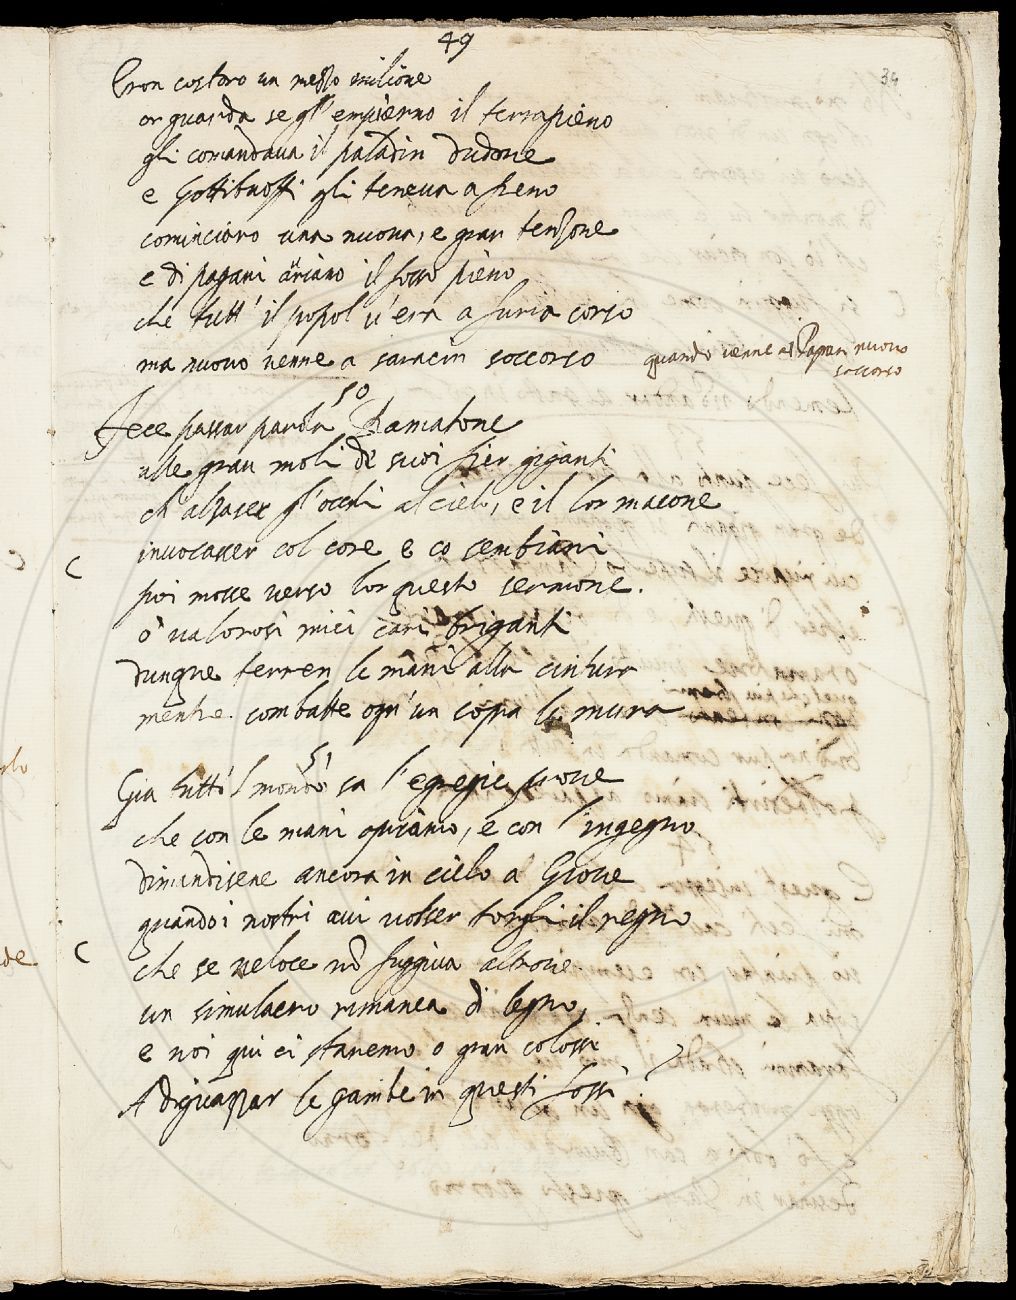 49
34
Eron costoro un mezzo milione
or guarda se gl'empierno il terrapieno
gli comandava il paladin dudone
e gli teneva a freno
cominciaro una nuova, e gran tenzone
e di pagani il fosso pieno
che tutt'il popol v'era a furia corso
ma nuovo venne a saracin soccorso
quando venne a Pagan nuovo
soccorso
50
Fece passar parola
alle gran moli de suoi fier giganti
ch'alzasser gl'occhi al cielo, e il lor macone
invocasser col core e co sembianti
poi mosse verso lor questo sermone.
o' valorosi miei cari briganti
dunque terren le mani alla cintura
mentre combatte ogn'un sopra le mura
51
Gia tutt'l mondo sa l'egregie prove
che con le mani opriamo, e con l'ingegno
dimandisene ancora in cielo a Giove
quando i nostri avi volser torgli il regno
che se veloce nõ fuggiva altrove
un simulacro rimanea di legno,
e noi qui ci staremo o gran colossi
A diguazzar le gambe in questi fossi?